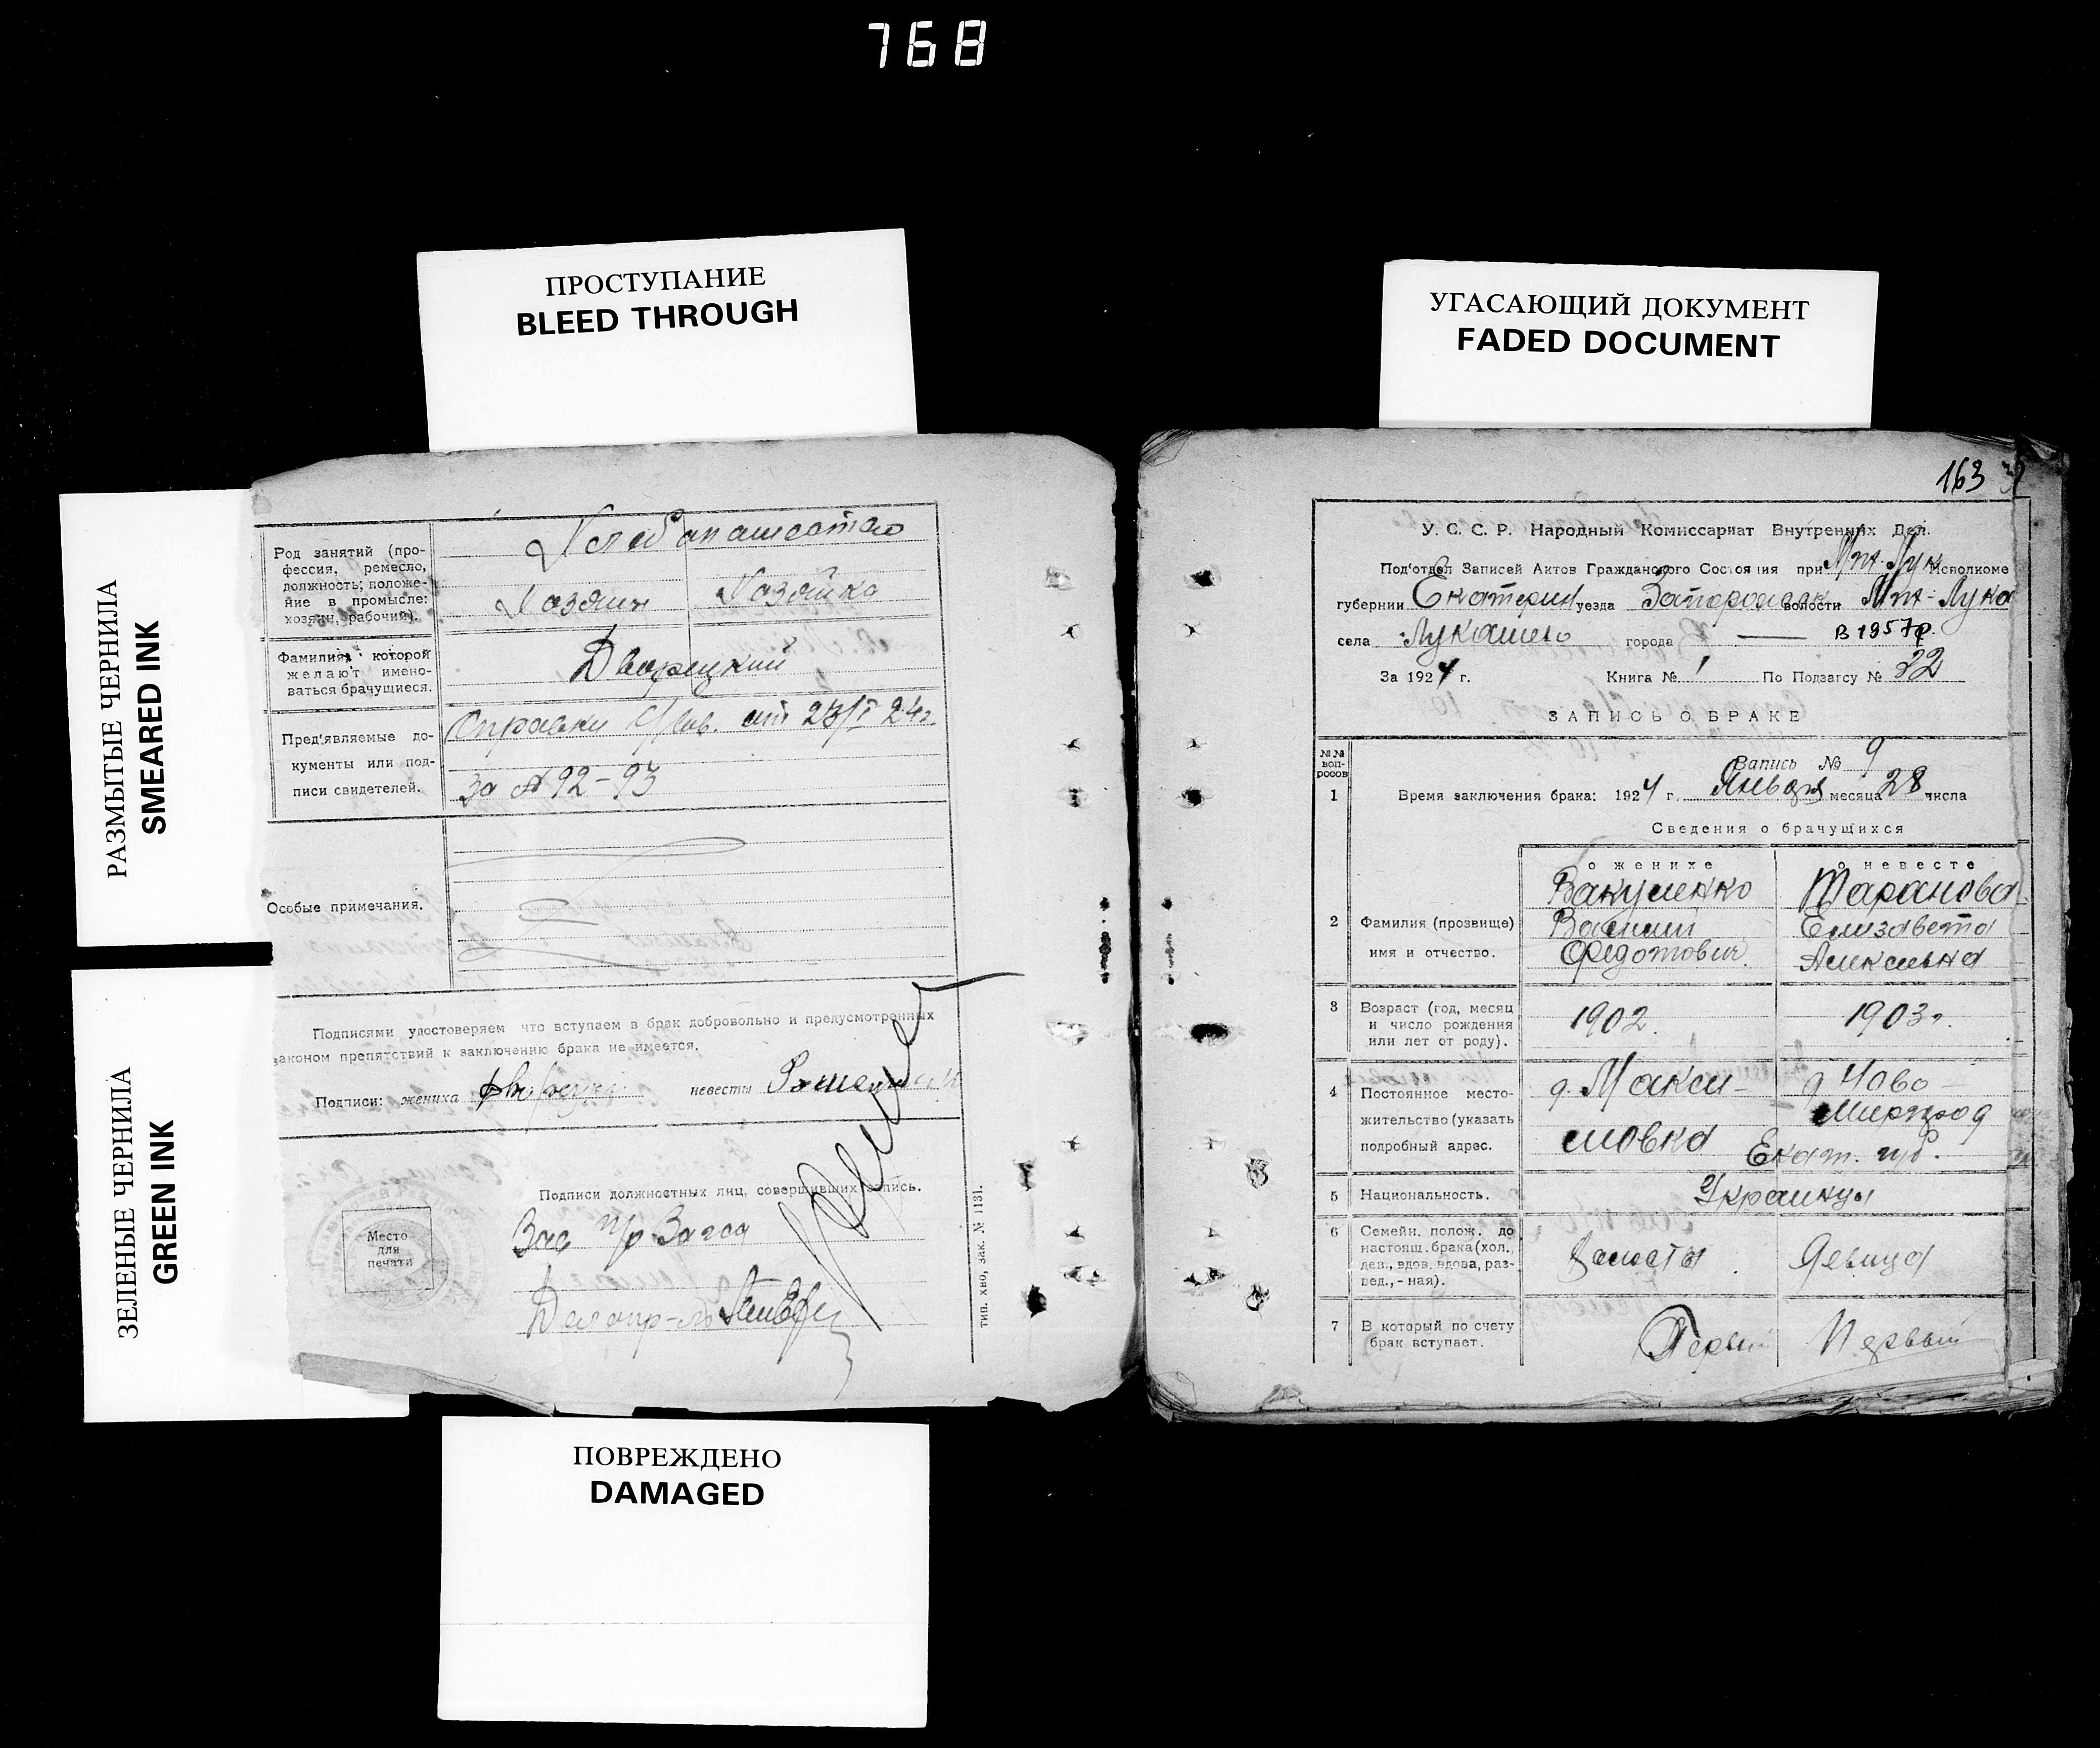 768
ПРОСТУПАНИЕ
BLEED THROUGH
УГАСАЮЩИЙ ДОКУМЕНТ
FADED DOCUMENT
РАЗМЫТЫЕ ЧЕРНИЛА
SMEARED INK
ЗЕЛЕНЫЕ ЧЕРНИЛА
GREEN INK
Род занятий (про-
фессия, ремесло,
должность; положе-
ние в промысле:
хозяин, рабочий).
Хлебопашество
Хозяин Хозяйка
Фамилия, которой
желают имено-
ваться брачущиеся.
Дворецкий
Пред'являемые до-
кументы или под-
писи свидетелей.
Справки от 23/I 24г.
за № 92-93
Особые примечания.
Подписями удостоверяем что вступаем в брак добровольно и предусмотренных
законом препятствий к заключению брака не имеется.
Подписи: жениха невесты
Подписи должностных лиц, совершивших запись.
Место
для
печати
Зав п/о Загса
Делопр-ль
тип. хво, зак. № 1131.
163
У. С. С. Р. Народный Комиссариат Внутренних Дел.
Под'отдел Записей Актов Гражданского Состояния при Мих-Лук Исполкоме
губернии Екатерин уезда Запорожск волости Мих-Лука
села Лукашево города — В 1957р.
За 1924 г. Книга № 1 По Подзагсу № 32
ЗАПИСЬ О БРАКЕ
№№ воп-
росов
Запись № 9
1 Время заключения брака: 1924 г. Января месяца 28 числа
Сведения о брачущихся
о женихе о невесте
2 Фамилия (прозвище)
имя и отчество.
Вакуленко Таранова
Василий Елизавета
Федотович Алексевна
3 Возраст (год, месяц
и число рождения
или лет от роду).
1902. 1903г.
4 Постоянное место-
жительство (указать
подробный адрес.
д. Макси- д Ново-
мовка Миргород
Екат. губ.
5 Национальность.
Украинцы
6 Семейн. полож. до
настоящ. брака (хол.,
дев., вдов, вдова, раз-
вед., - ная).
Холостой Девица
7 В который по счету
брак вступает.
Первый Первый
ПОВРЕЖДЕНО
DAMAGED